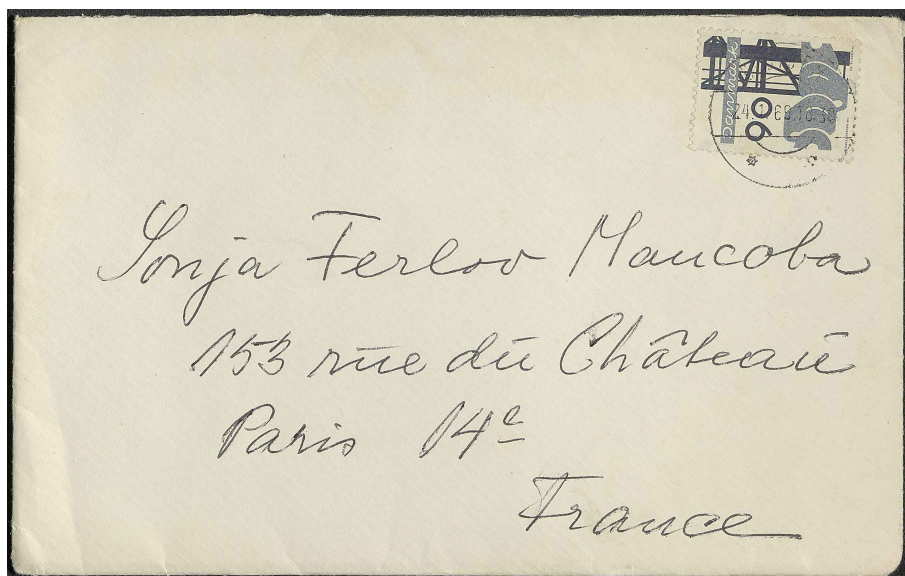 Danmark
90
24.1.69.16-30
Sonja Ferlov Mancoba
153 rue du Château
Paris 14e
France